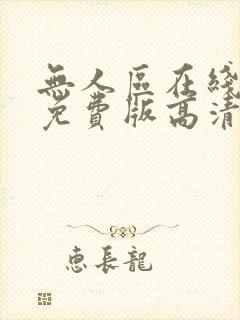 無人區在綫
免費版高清
惠長龍